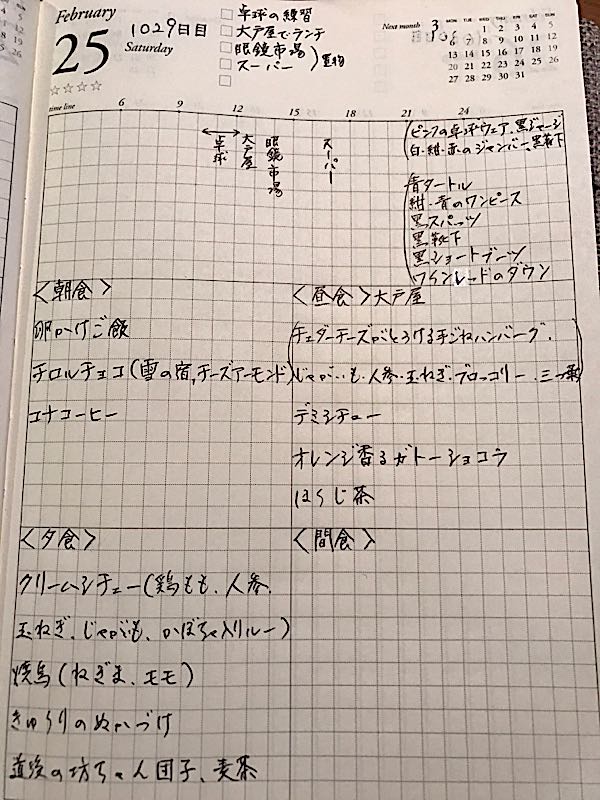 February
25
1029日目
Saturday
☆☆☆☆
卓球の練習
大戸屋でランチ
眼鏡市場
スーパー
買物
Next month 3
MON TUE WED THU FRI SAT SUN
1 2 3 4 5
6 7 8 9 10 11 12
13 14 15 16 17 18 19
20 21 22 23 24 25 26
27 28 29 30 31
time line 6 9 12 15 18 21 24
卓球
大戸屋
眼鏡市場
スーパー
(ピンクの卓球ウェア、黒ジャージ
白・紺・赤のジャンパー、黒靴下
青タートル
紺・青のワンピース
黒スパッツ
黒靴下
黒ショートブーツ
ワインレッドのダウン
<朝食>
卵かけご飯
チロルチョコ(雪の宿,チーズアーモンド)
コナコーヒー
<昼食>大戸屋
チェダーチーズがとろける手ごねハンバーグ、
じゃがいも・人参・玉ねぎ・ブロッコリー・三つ葉)
デミシチュー
オレンジ香るガトーショコラ
ほうじ茶
<夕食>
クリームシチュー(鶏もも、人参、
玉ねぎ、じゃがいも、かぼちゃ入りルー)
焼鳥(ねぎま、モモ)
きゅうりのぬかづけ
道後の坊ちゃん団子、麦茶
<間食>